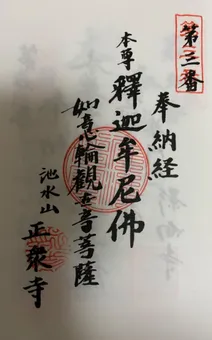 第三番
奉納経
本尊 釋迦牟尼佛
如意輪觀世音菩薩
池水山
正衆寺